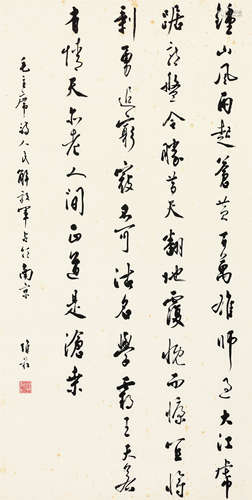 鐘山風雨起蒼黄百萬雄師過大江虎
踞龙盤今勝昔天翻地覆慨而慷宜將
剩勇追窮寇不可沽名學霸王天若
有情天亦老人間正道是滄桑
毛主席詩人民解放軍占領南京